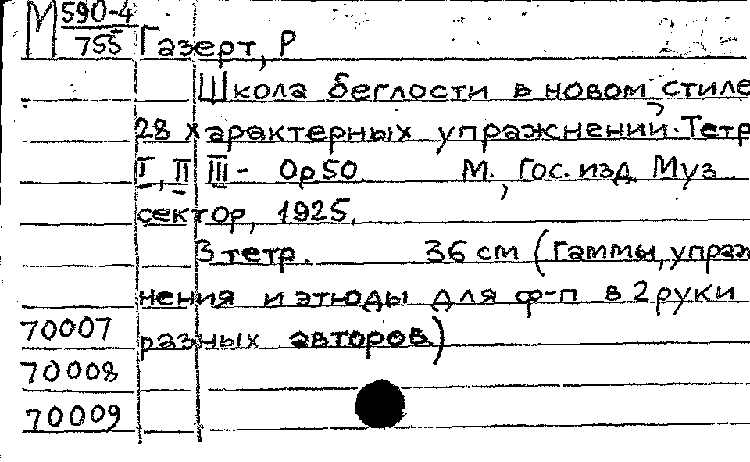 М 590-4
755 Газерт, Р
Школа беглости в новом стиле
28 характерных упражнений. Тетр
I, II III - Op50 М., Гос. изд. Муз
сектор, 1925.
3 тетр. 36 см (Гаммы, упраж
нения и этюды для ф-п в 2 руки
70007 разных авторов)
70008
70009